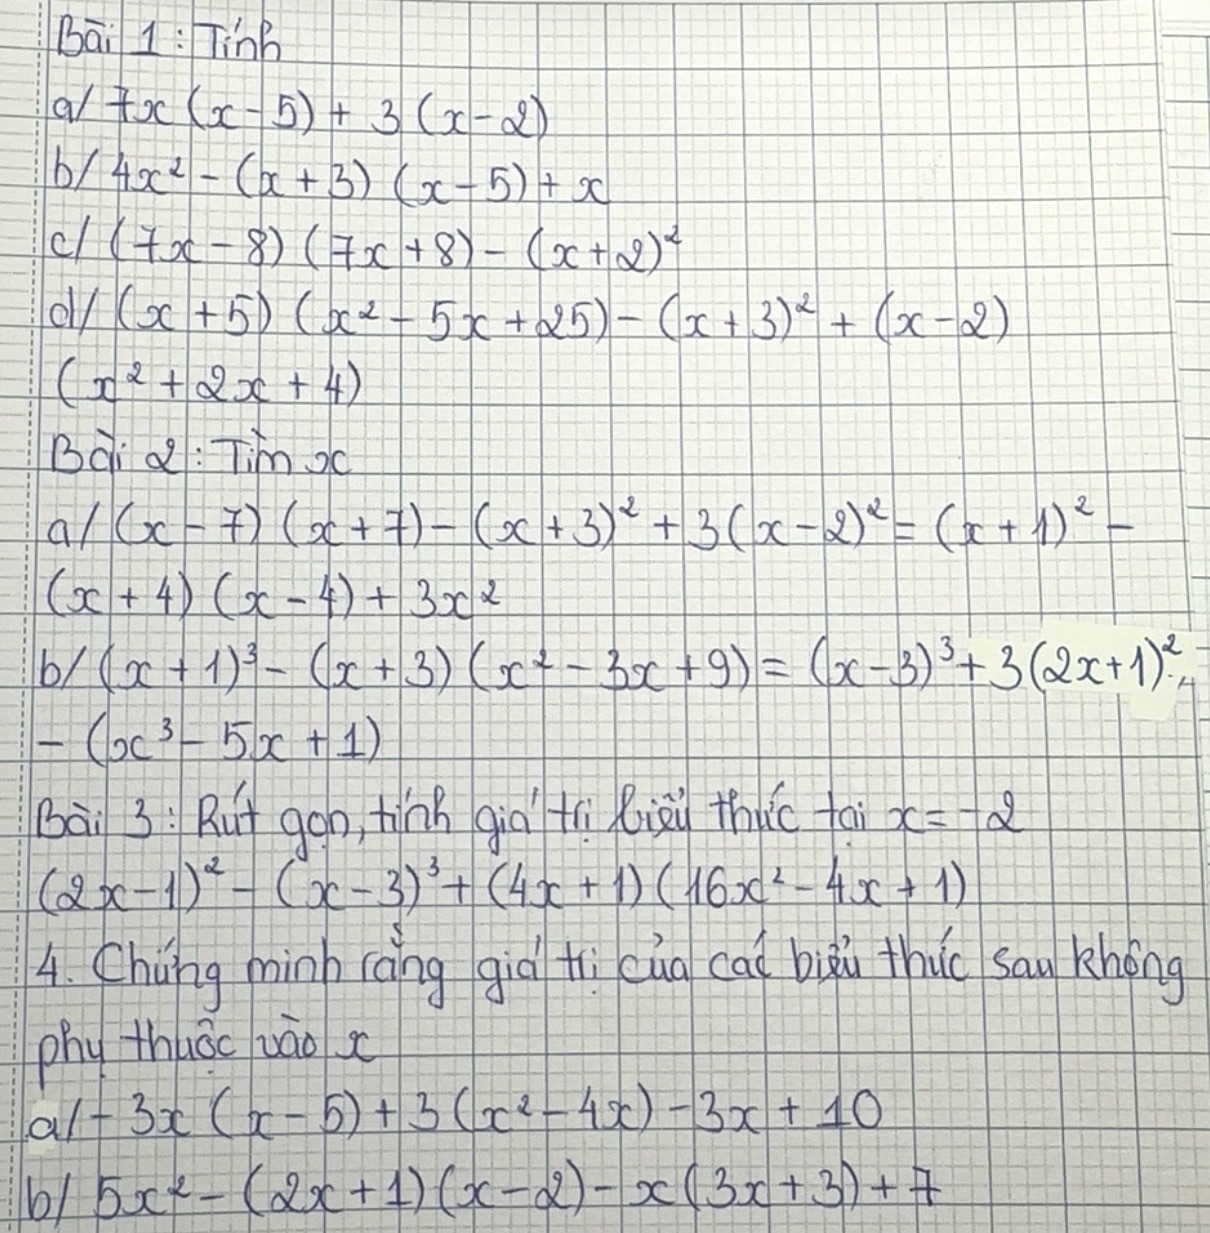 Bài 1 : Tính
a/ 7x (x - 5) + 3 (x - 2)
b/ 4x² - (x + 3) (x - 5) + x
c/ (7x - 8) (7x + 8) - (x + 2)²
d/ (x + 5) (x² - 5x + 25) - (x + 3)² + (x - 2)
(x² + 2x + 4)
Bài 2 : Tìm x
a/ (x - 7) (x + 7) - (x + 3)² + 3(x - 2)² = (x + 1)² -
(x + 4) (x - 4) + 3x²
b/ (x + 1)³ - (x + 3) (x² - 3x + 9) = (x - 3)³ + 3(2x + 1)²
- (x³ - 5x + 1)
Bài 3 : Rút gọn, tính giá trị biểu thức tại x = -2
(2x - 1)² - (x - 3)³ + (4x + 1) (16x² - 4x + 1)
4. Chứng minh rằng giá trị của các biểu thức sau không
phụ thuộc vào x
a/ - 3x (x - 5) + 3 (x² - 4x) - 3x + 10
b/ 5x² - (2x + 1) (x - 2) - x (3x + 3) + 7